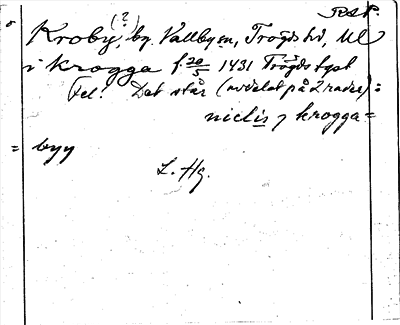 RAP.
(?)
Kroby, by, Vallby sn, Trögds hd, Upl
i krogga f. 20/5 1431 Trögds tgst
(Fel! Det står (avdelat på 2 rader):
niclis i krogga=
= byy
L. Hg.